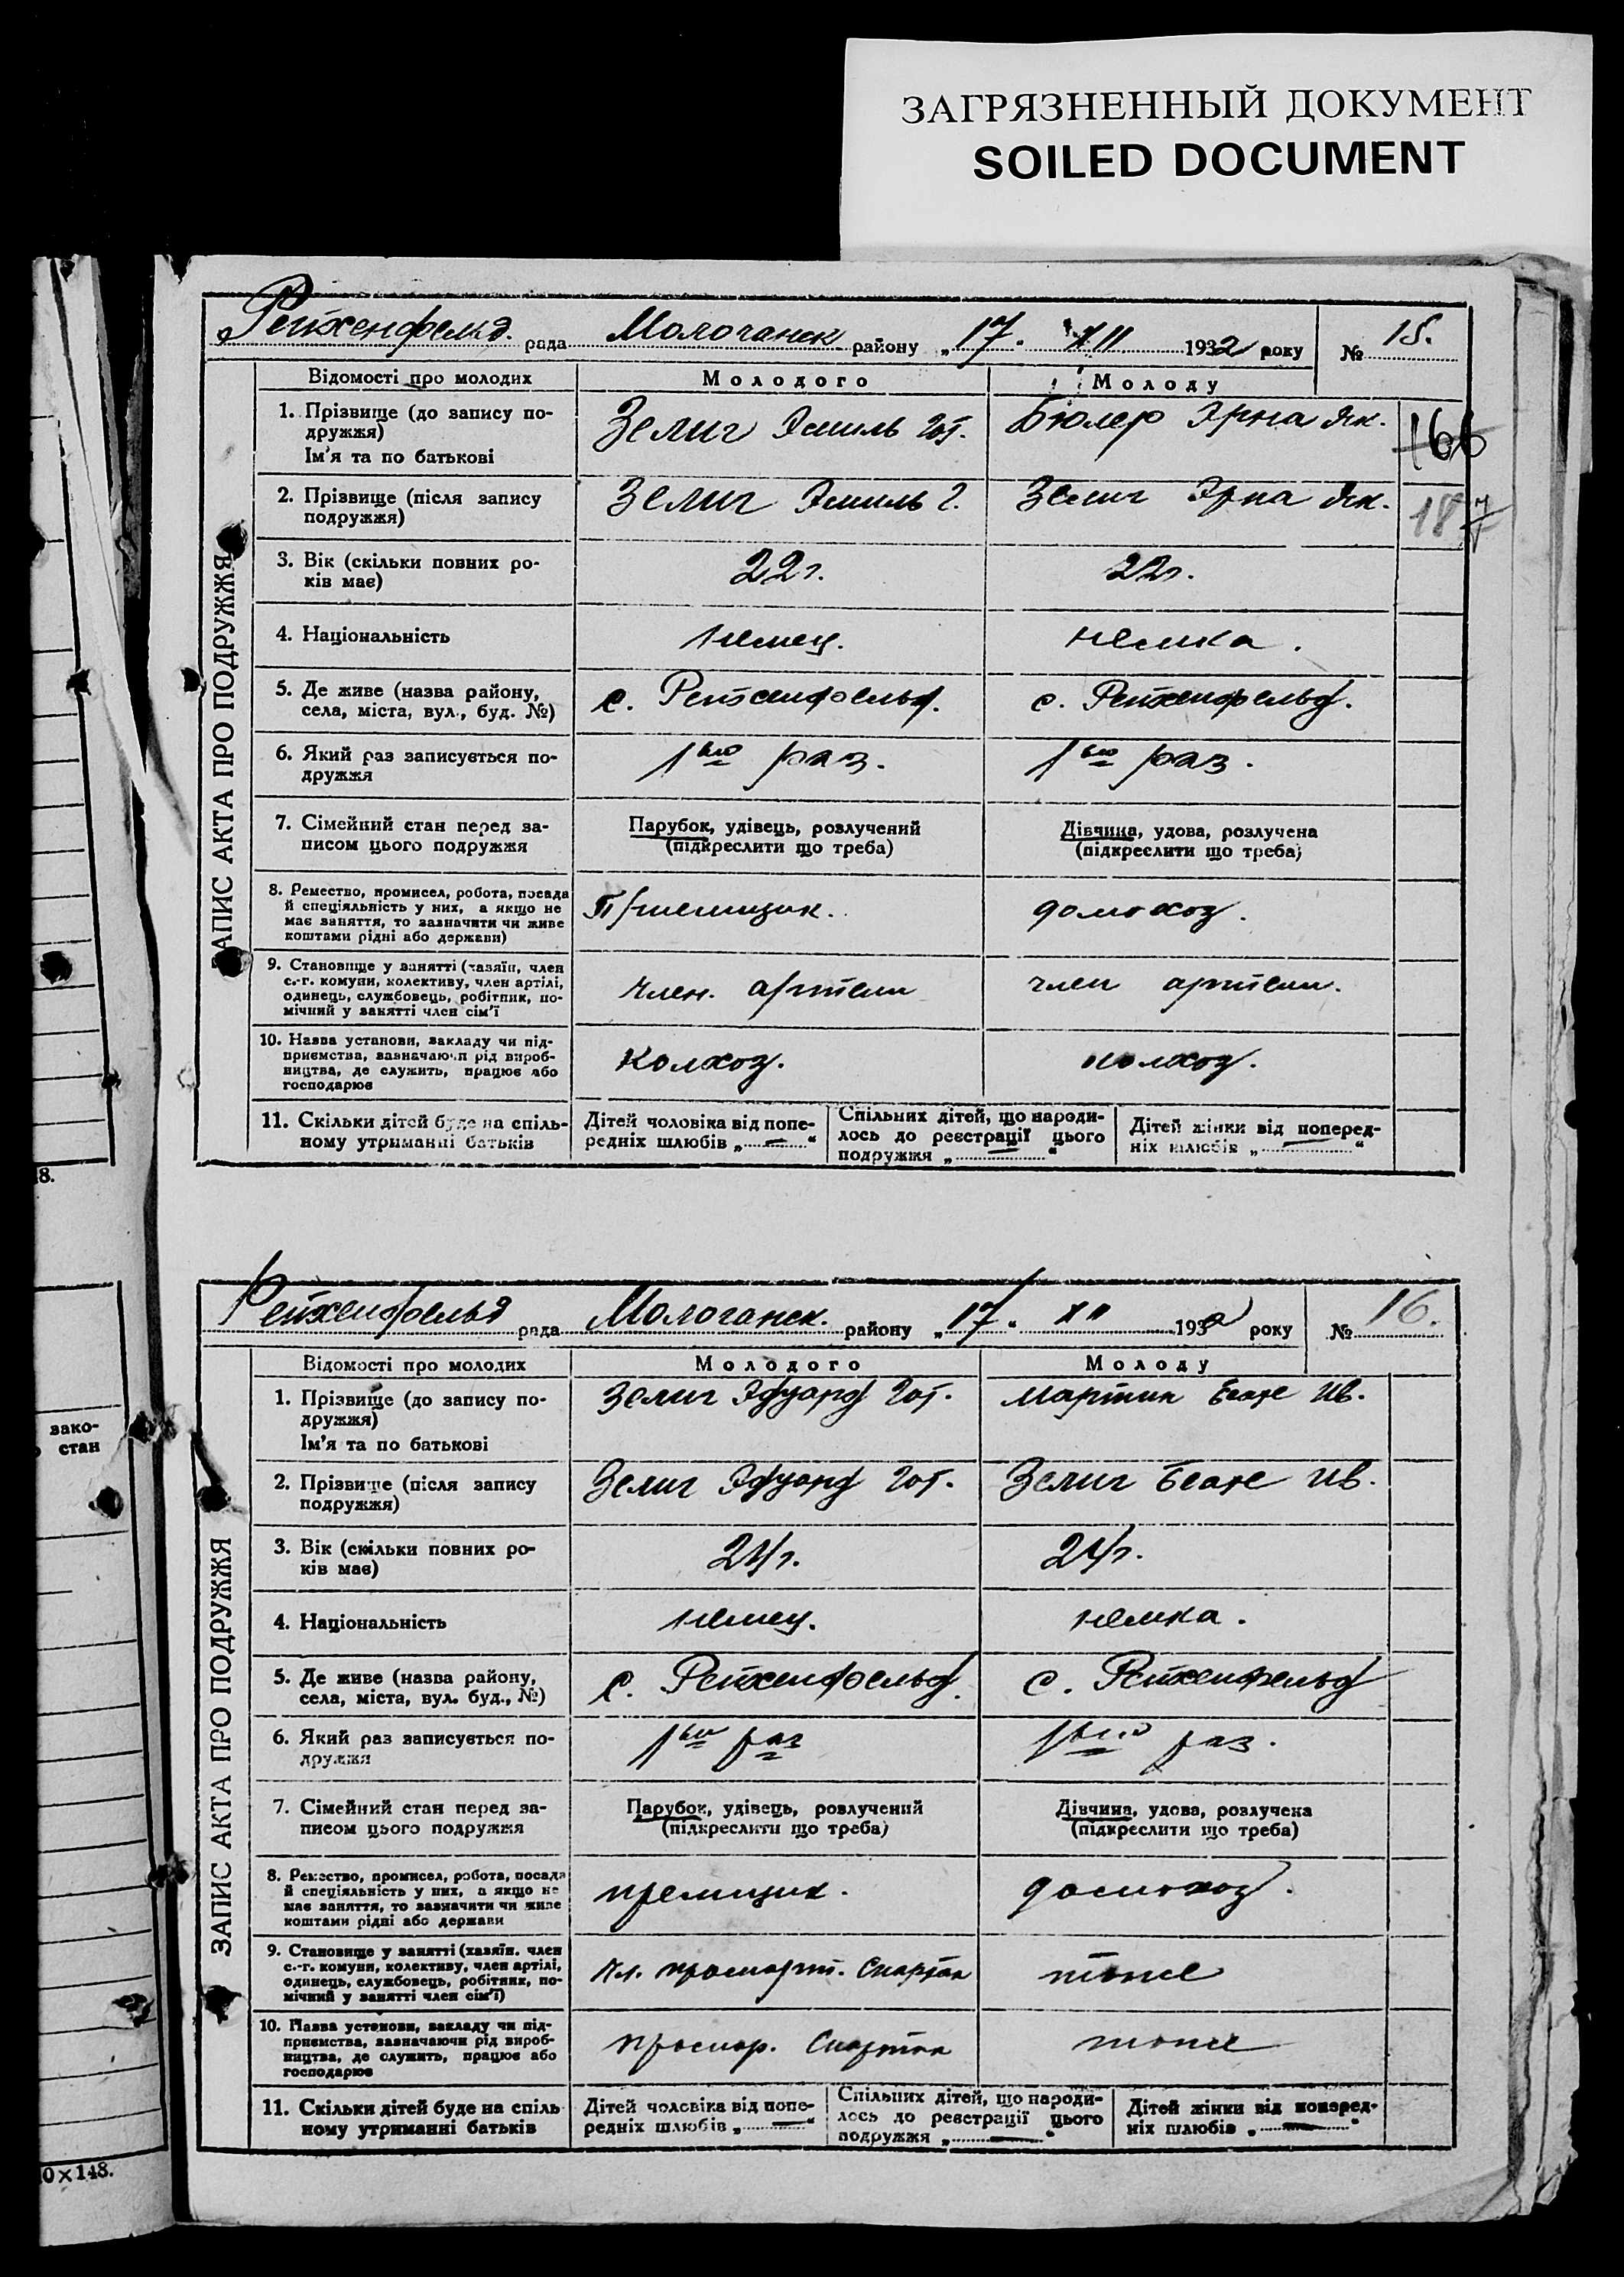 ЗАГРЯЗНЕННЫЙ ДОКУМЕНТ
SOILED DOCUMENT
Рейхенфельд. рада Молочанск району „17. XII 1932 року № 15.
ЗАПИС АКТА ПРО ПОДРУЖЖЯ
Відомості про молодих Молодого Молоду
1. Прізвище (до запису по-
дружжя)
Ім'я та по батькові
Зелиг Эмиль Гот. Бюлер Эрна Як.
166
2. Прізвище (після запису
подружжя)
Зелиг Эмиль Г. Зелиг Эрна Як.
18
3. Вік (скільки повних ро-
ків має)
22 г. 22 г.
4. Національність немец. немка.
5. Де живе (назва району,
села, міста, вул., буд. №)
с. Рейхенфельд. с. Рейхенфельд.
6. Який раз записується по-
дружжя
1вый раз. 1вый раз.
7. Сімейний стан перед за-
писом цього подружжя
Парубок, удівець, розлучений
(підкреслити що треба)
Дівчина, удова, розлучена
(підкреслити що треба)
8. Ремество, промисел, робота, посада
й спеціяльність у них, а якщо не
має заняття, то зазначити чи живе
коштами рідні або держави)
домохоз.
9. Становище у занятті (хазяїн, член
с.-г. комуни, колективу, член артілі,
одинець, службовець, робітник, по-
мічний у занятті член сім'ї
член. артели член артели.
10. Назва установи, закладу чи під-
приємства, зазначаючи рід вироб-
ництва, де служить, працює або
господарює
Колхоз. колхоз.
11. Скільки дітей буде на спіль-
ному утриманні батьків
Дітей чоловіка від попе-
редніх шлюбів „—“
Спільних дітей, що народи-
лось до реєстрації цього
подружжя „—“
Дітей жінки від поперед-
ніх шлюбів „—“
8.
Рейхенфельд рада Молочанск. району „17. XII 1932 року № 16.
ЗАПИС АКТА ПРО ПОДРУЖЖЯ
Відомості про молодих Молодого Молоду
1. Прізвище (до запису по-
дружжя)
Ім'я та по батькові
Зелиг Эдуард Гот. Мартин Беате Ив.
вако-
стан
2. Прізвище (після запису
подружжя)
Зелиг Эдуард Гот. Зелиг Беате Ив.
3. Вік (скільки повних ро-
ків має)
24 г. 24 г.
4. Національність немец. немка.
5. Де живе (назва району,
села, міста, вул. буд., №)
с. Рейхенфельд. с. Рейхенфельд
6. Який раз записується по-
дружжя
1вый раз 1вый раз.
7. Сімейний стан перед за-
писом цього подружжя
Парубок, удівець, розлучений
(підкреслити що треба)
Дівчина, удова, розлучена
(підкреслити що треба)
8. Ремество, промисел, робота, посада
й спеціяльність у них, а якщо не
має заняття, то зазначити чи живе
коштами рідні або держави
домохоз.
9. Становище у занятті (хазяїн. член
с.-г. комуни, колективу, член артілі,
одинець, службовець, робітник, по-
мічний у занятті член сім'ї)
Чл. промарт. Спартак тоже
10. Назва установи, закладу чи під-
приємства, зазначаючи рід вироб-
ництва, де служить, працює або
господарює
Спартак тоже
11. Скільки дітей буде на спіль
ному утриманні батьків
Дітей чоловіка від попе-
редніх шлюбів „—“
Спільних дітей, що народи-
лось до реєстрації цього
подружжя „—“
Дітей жінки від поперед-
ніх шлюбів „—“
0×148.